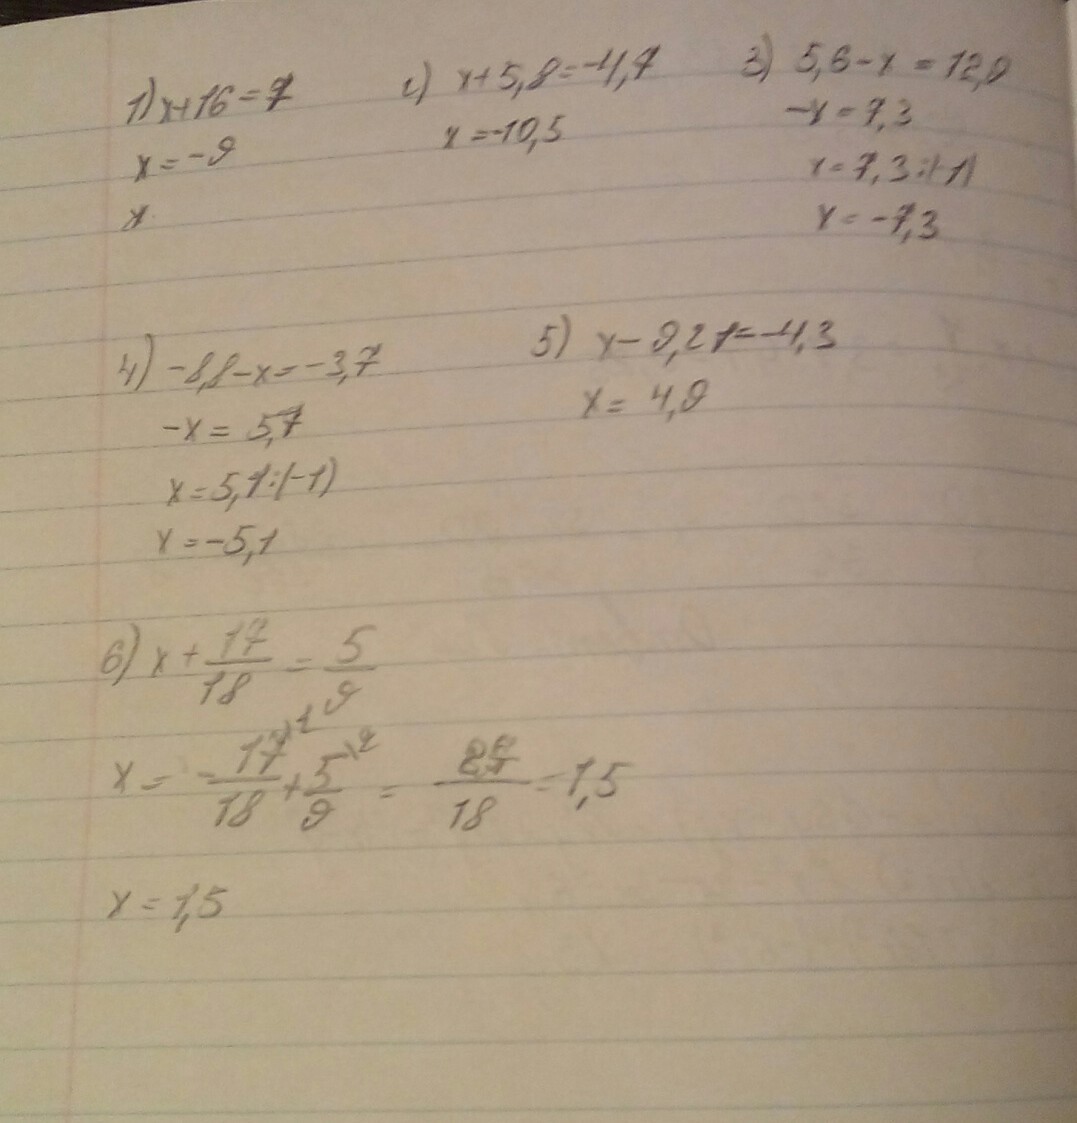 1) x+16=7
x=-9
x
2) x+5,8=-4,7
x=-10,5
3) 5,6-x=12,9
-x=7,3
x=7,3:(-1)
x=-7,3
4) -8,8-x=-3,7
-x=5,7
x=5,1:(-1)
x=-5,1
5) x-9,2=-4,3
x=4,9
6) x+17/18=5/9
x=-17\1/18+5\2/9=27/18=1,5
x=1,5